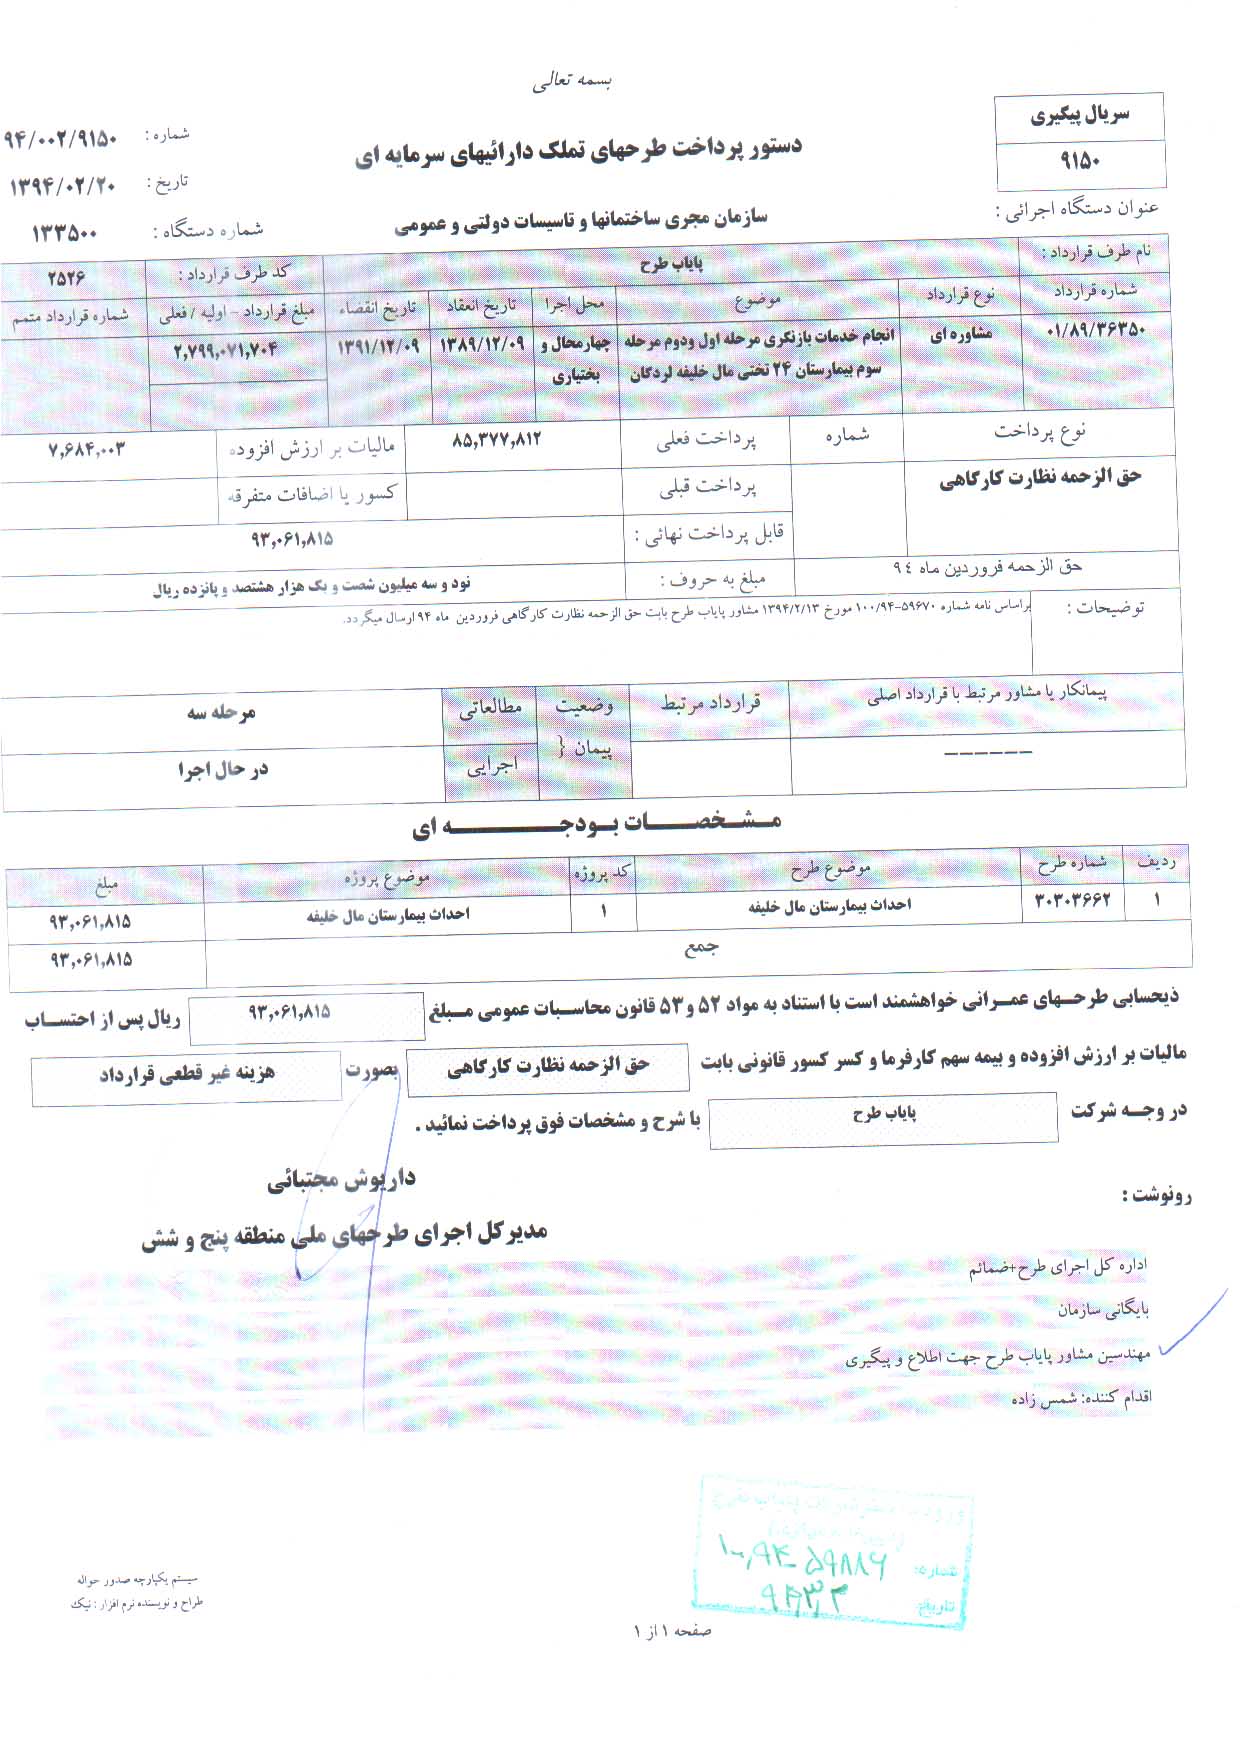 بسمه تعالی
سریال پیگیری
۹۱۵۰
دستور پرداخت طرحهای تملک دارائیهای سرمایه ای
شماره : ۹۴/۰۰۲/۹۱۵۰
تاریخ : ۱۳۹۴/۰۲/۲۰
عنوان دستگاه اجرائی : سازمان مجری ساختمانها و تاسیسات دولتی و عمومی
شماره دستگاه : ۱۳۳۵۰۰
نام طرف قرارداد : پایاب طرح کد طرف قرارداد : ۲۵۲۶
شماره قرارداد نوع قرارداد موضوع محل اجرا تاریخ انعقاد تاریخ انقضاء مبلغ قرارداد - اولیه / فعلی شماره قرارداد متمم
۰۱/۸۹/۳۶۳۵۰ مشاوره ای انجام خدمات بازنگری مرحله اول ودوم مرحله چهارمحال و ۱۳۸۹/۱۲/۰۹ ۱۳۹۱/۱۲/۰۹ ۲,۷۹۹,۰۷۱,۷۰۴
سوم بیمارستان ۲۴ تختی مال خلیفه لردگان بختیاری
نوع پرداخت شماره پرداخت فعلی ۸۵,۳۷۷,۸۱۲ مالیات بر ارزش افزوده ۷,۶۸۴,۰۰۳
حق الزحمه نظارت کارگاهی پرداخت قبلی کسور یا اضافات متفرقه
قابل پرداخت نهائی : ۹۳,۰۶۱,۸۱۵
حق الزحمه فروردین ماه ۹٤ مبلغ به حروف : نود و سه میلیون شصت و یک هزار هشتصد و پانزده ریال
توضیحات : براساس نامه شماره ۵۹۶۷۰-۱۰۰/۹۴ مورخ ۱۳۹۴/۲/۱۳ مشاور پایاب طرح بابت حق الزحمه نظارت کارگاهی فروردین ماه ۹۴ ارسال میگردد.
پیمانکار یا مشاور مرتبط با قرارداد اصلی قرارداد مرتبط وضعیت پیمان { مطالعاتی مرحله سه
------ اجرایی در حال اجرا
مـشـخصـــات بـودجـــــه ای
ردیف شماره طرح موضوع طرح کد پروژه موضوع پروژه مبلغ
۱ ۳۰۳۰۳۶۶۲ احداث بیمارستان مال خلیفه ۱ احداث بیمارستان مال خلیفه ۹۳,۰۶۱,۸۱۵
جمع ۹۳,۰۶۱,۸۱۵
ذیحسابی طرحـهای عمـرانی خواهشمند است با استناد به مواد ۵۲ و ۵۳ قانون محاسـبات عمومی مـبلغ ۹۳,۰۶۱,۸۱۵ ریال پس از احتسـاب
مالیات بر ارزش افزوده و بیمه سهم کارفرما و کسر کسور قانونی بابت حق الزحمه نظارت کارگاهی بصورت هزینه غیر قطعی قرارداد
در وجـه شرکت پایاب طرح با شرح و مشخصات فوق پرداخت نمائید .
داریوش مجتبائی
مدیرکل اجرای طرحهای ملی منطقه پنج و شش
رونوشت :
اداره کل اجرای طرح+ضمائم
بایگانی سازمان
مهندسین مشاور پایاب طرح جهت اطلاع و پیگیری
اقدام کننده: شمس زاده
شماره:
تاریخ:
سیستم یکپارچه صدور حواله
طراح و نویسنده نرم افزار : نیک
صفحه ۱ از ۱